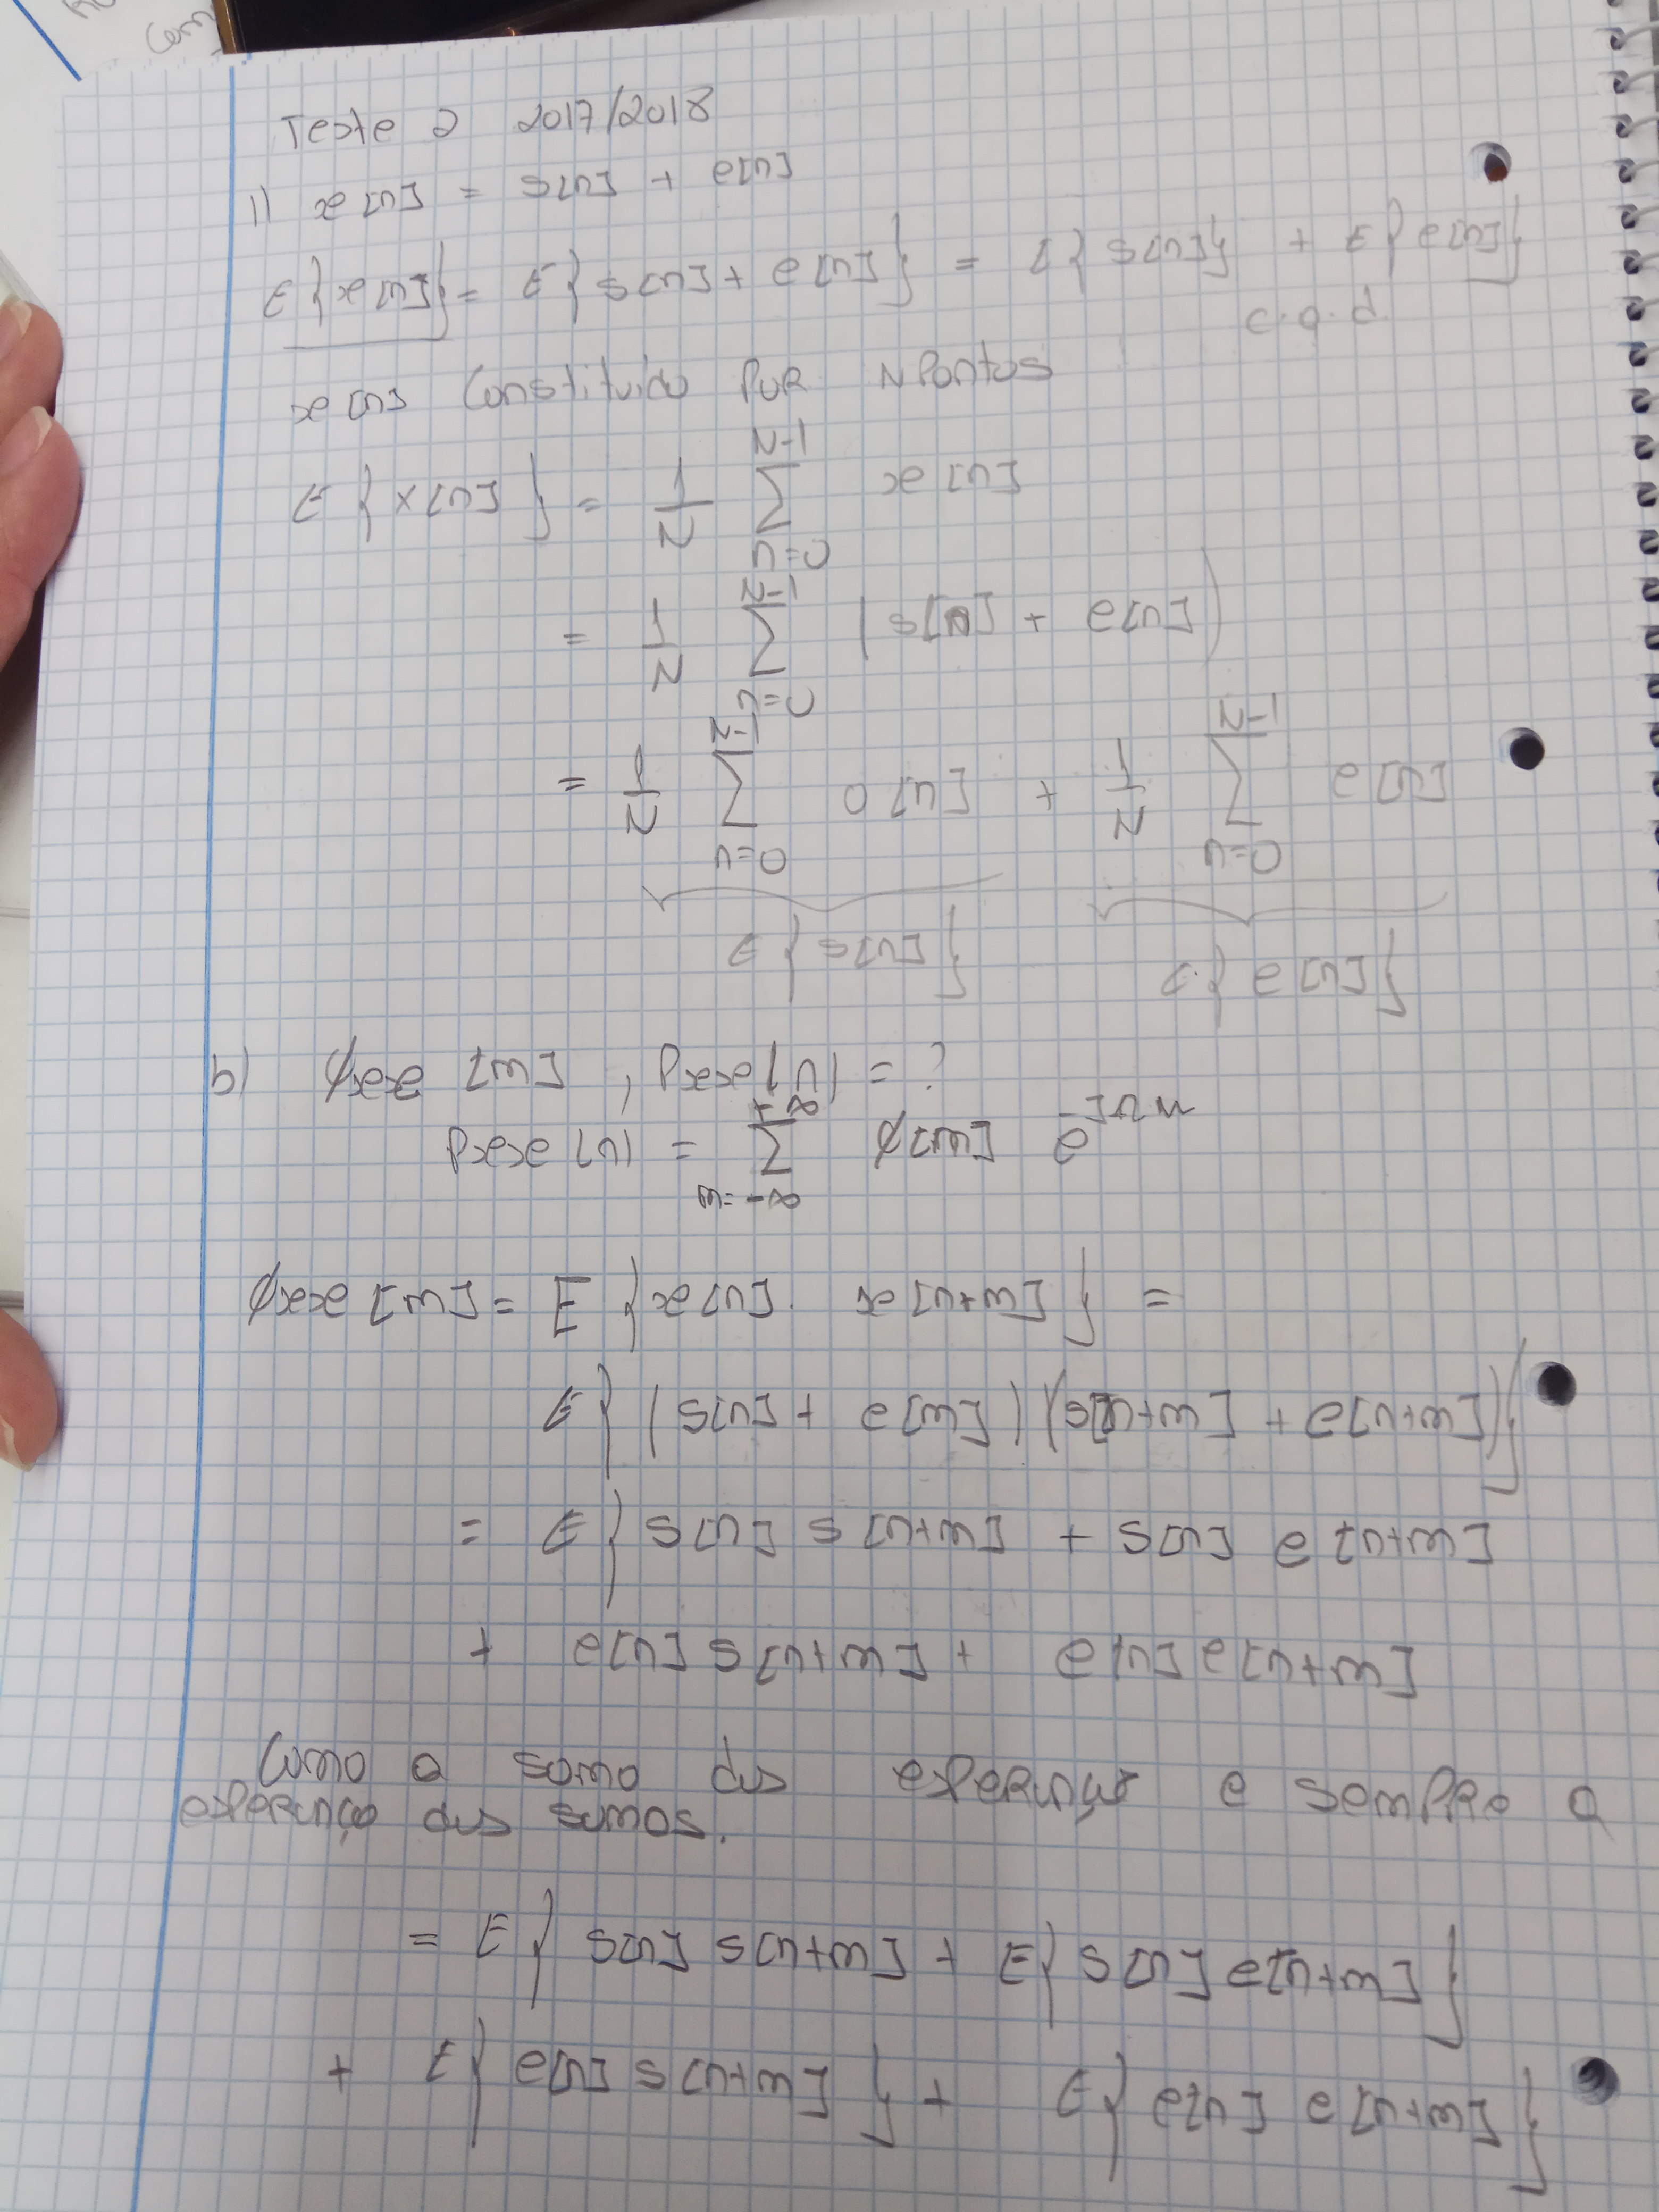 Teste 2 2017/2018
1) x[n] = s[n] + e[n]
E{x[n]} = E{s[n] + e[n]} = E{s[n]} + E{e[n]}
c.q.d.
x[n] constituído por N pontos
E{x[n]} = 1/N ∑_{n=0}^{N-1} x[n]
= 1/N ∑_{n=0}^{N-1} (s[n] + e[n])
= 1/N ∑_{n=0}^{N-1} s[n] + 1/N ∑_{n=0}^{N-1} e[n]
E{s[n]} E{e[n]}
b) ϕxx [m] , Pxx(Ω) = ?
Pxx(Ω) = ∑_{m=-∞}^{+∞} ϕ[m] e^{-jΩm}
ϕxx[m] = E{x[n] . x[n+m]} =
E{(s[n] + e[m])(s[n+m] + e[n+m])}
= E{s[n] s[n+m] + s[n] e[n+m]
+ e[n] s[n+m] + e[n] e[n+m]
Como a soma das esperança e sempre a
esperança das somas.
= E{s[n] s[n+m] + E{s[n] e[n+m]}
+ E{e[n] s[n+m]} + E{e[n] e[n+m]}